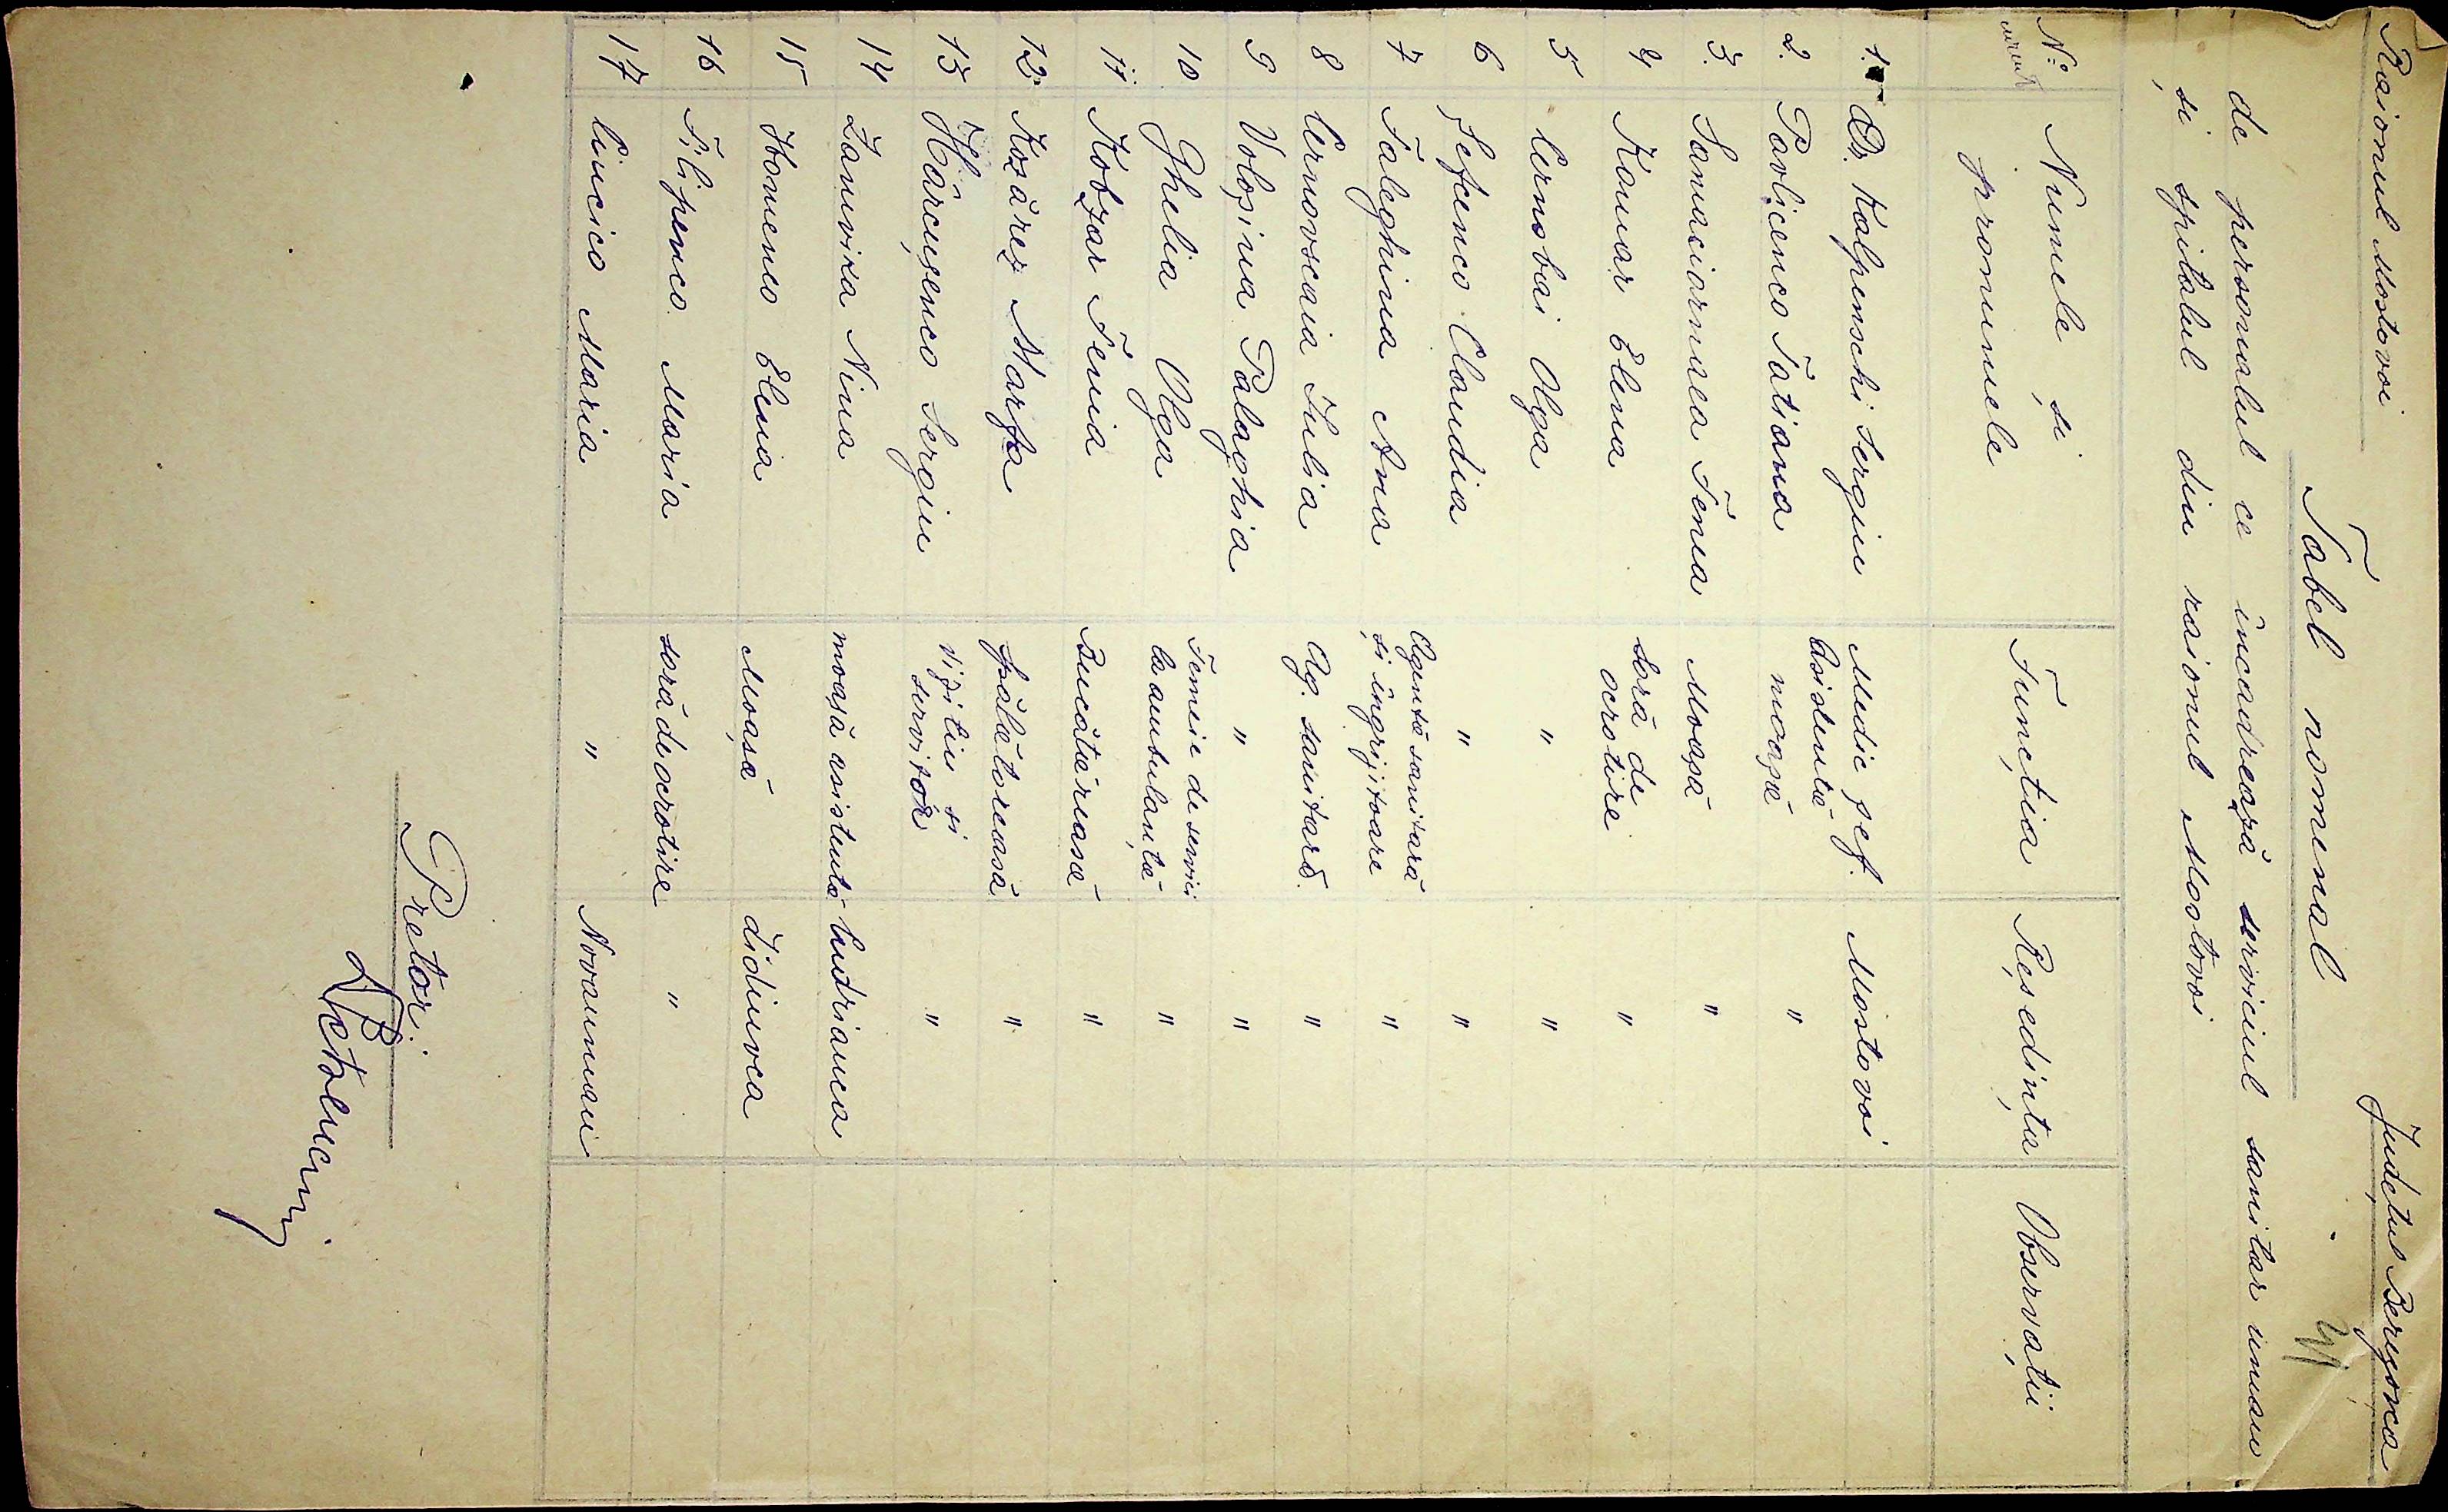 Raionul Mostovoi
Județul Berezovca
Tabel nominal
de personalul ce încadrează serviciul sanitar uman
și spitalul din raionul Mostovoi
Nº curent Numele și pronumele Funcția Reședința Observații
1. Dr. Kalpenschi Sergiu Medic șef. Mostovoi
2. Pavlicenco Tatiana Asistentă moașă "
3. Samaciornaea Fenea Moașă "
4 Konar Elena Soră de ocrotire "
5 Cernobai Olga " "
6 Șefcenco Claudia " "
7 Taleghina Ana Agentă sanitară și îngrijitoare "
8 Cernovscaia Iulia Ag. sanitară. "
9 Voloșina Palaghia " "
10 Ghelia Olga Femeie de servici la ambulanță "
11 Kobzar Fenia Bucătăreasă "
12 Kozărez Marfa Spălătoreasă "
13 Hărcușenco Sergiu Vizitiu și servitor "
14 Zanvira Nina moașă asistentă Cudrianca
15 Homenco Elena Moașă Jidinvca
16 Filipenco Maria soră de ocrotire "
17 Cincico Maria " Novaumani
Pretor